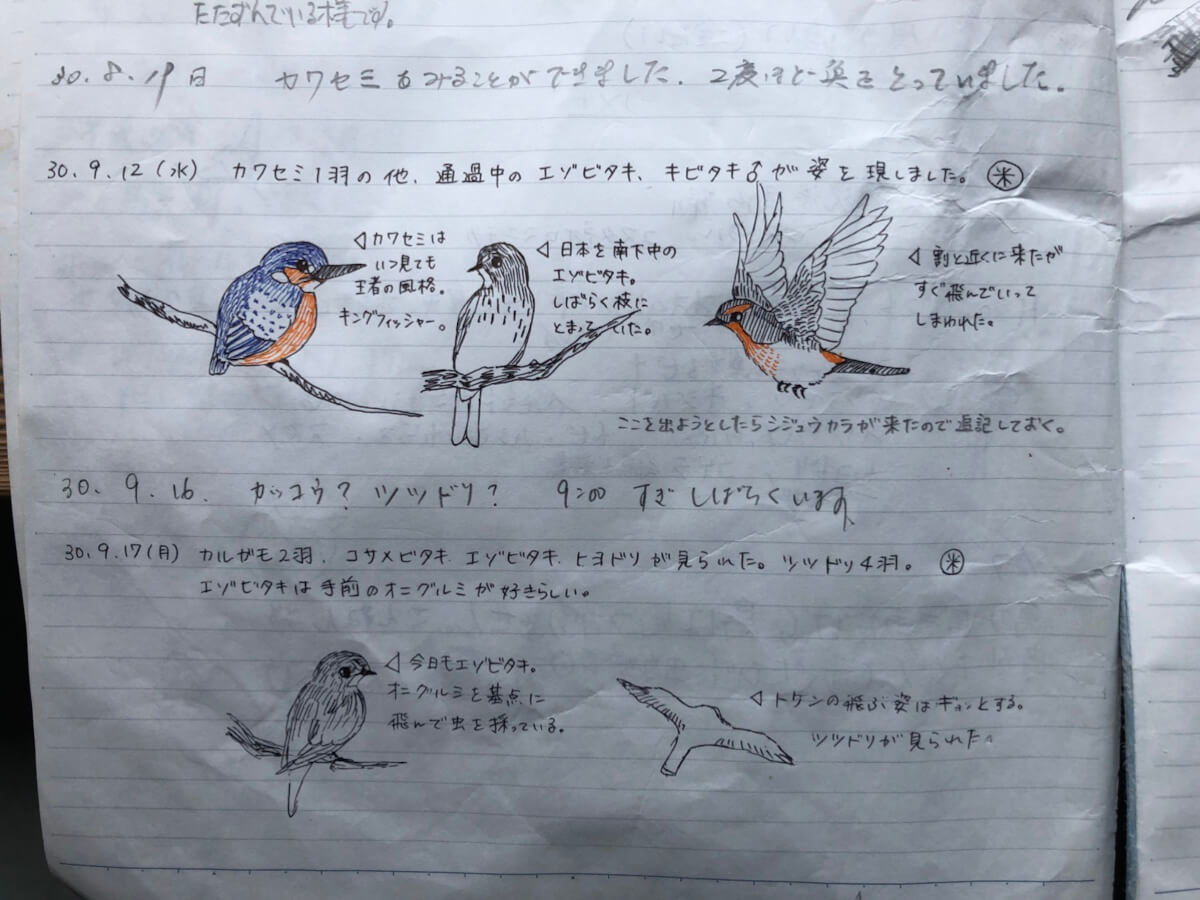 たたずんでいる様です。
30.8.19日 カワセミをみることができました。2度ほど魚をとっていました。
30.9.12(水) カワセミ1羽の他、通過中のエゾビタキ、キビタキ♂が姿を現しました。 ㊍
◁カワセミは
いつ見ても
王者の風格。
キングフィッシャー。
◁日本を南下中の
エゾビタキ。
しばらく枝に
とまっていた。
◁割と近くに来たが
すぐ飛んでいって
しまわれた。
ここを出ようとしたらシジュウカラが来たので追記しておく。
30.9.16. カッコウ? ツツドリ? 9:00すぎ しばらくいます
30.9.17(月) カルガモ2羽、コサメビタキ、エゾビタキ、ヒヨドリが見られた。ツツドリ4羽。
エゾビタキは手前のオニグルミが好きらしい。
◁今日もエゾビタキ。
オニグルミを基点に
飛んで虫を採っている。
◁トケンの飛ぶ姿はギョッとする。
ツツドリが見られた。